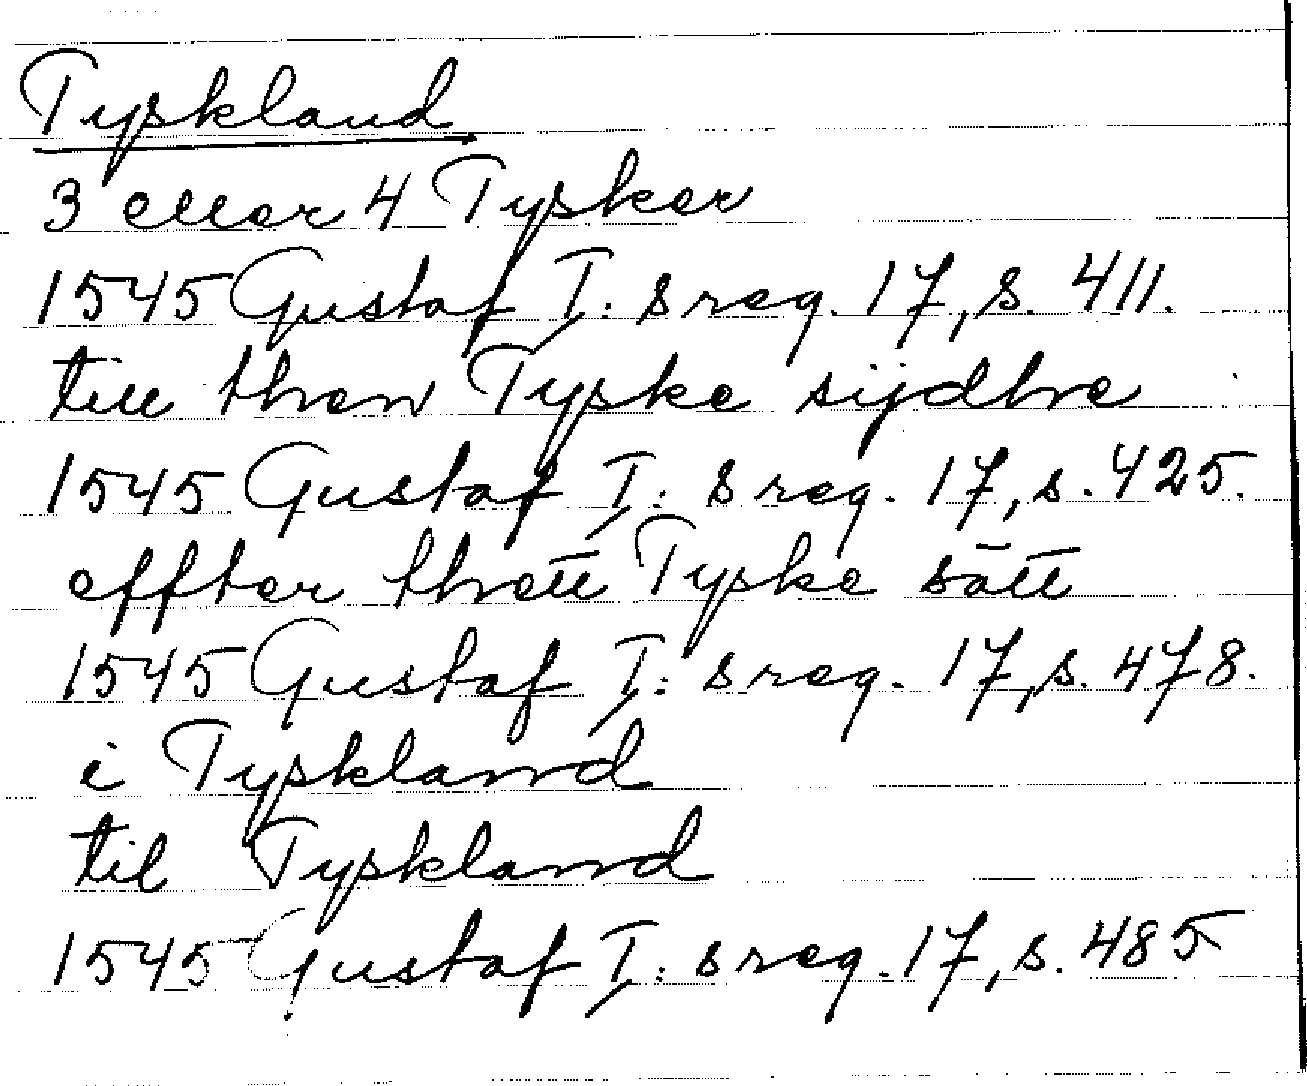 Tyskland
3 eller 4 Tysker
1545 Gustaf I: s reg. 17, s. 411.
till then Tyske sijdhe
1545 Gustaf I: s reg. 17, s. 425.
effter thett Tyske sätt
1545 Gustaf I: s reg. 17, s. 478.
i Tysklannd
til Tysklannd
1545 Gustaf I: s reg. 17, s. 485